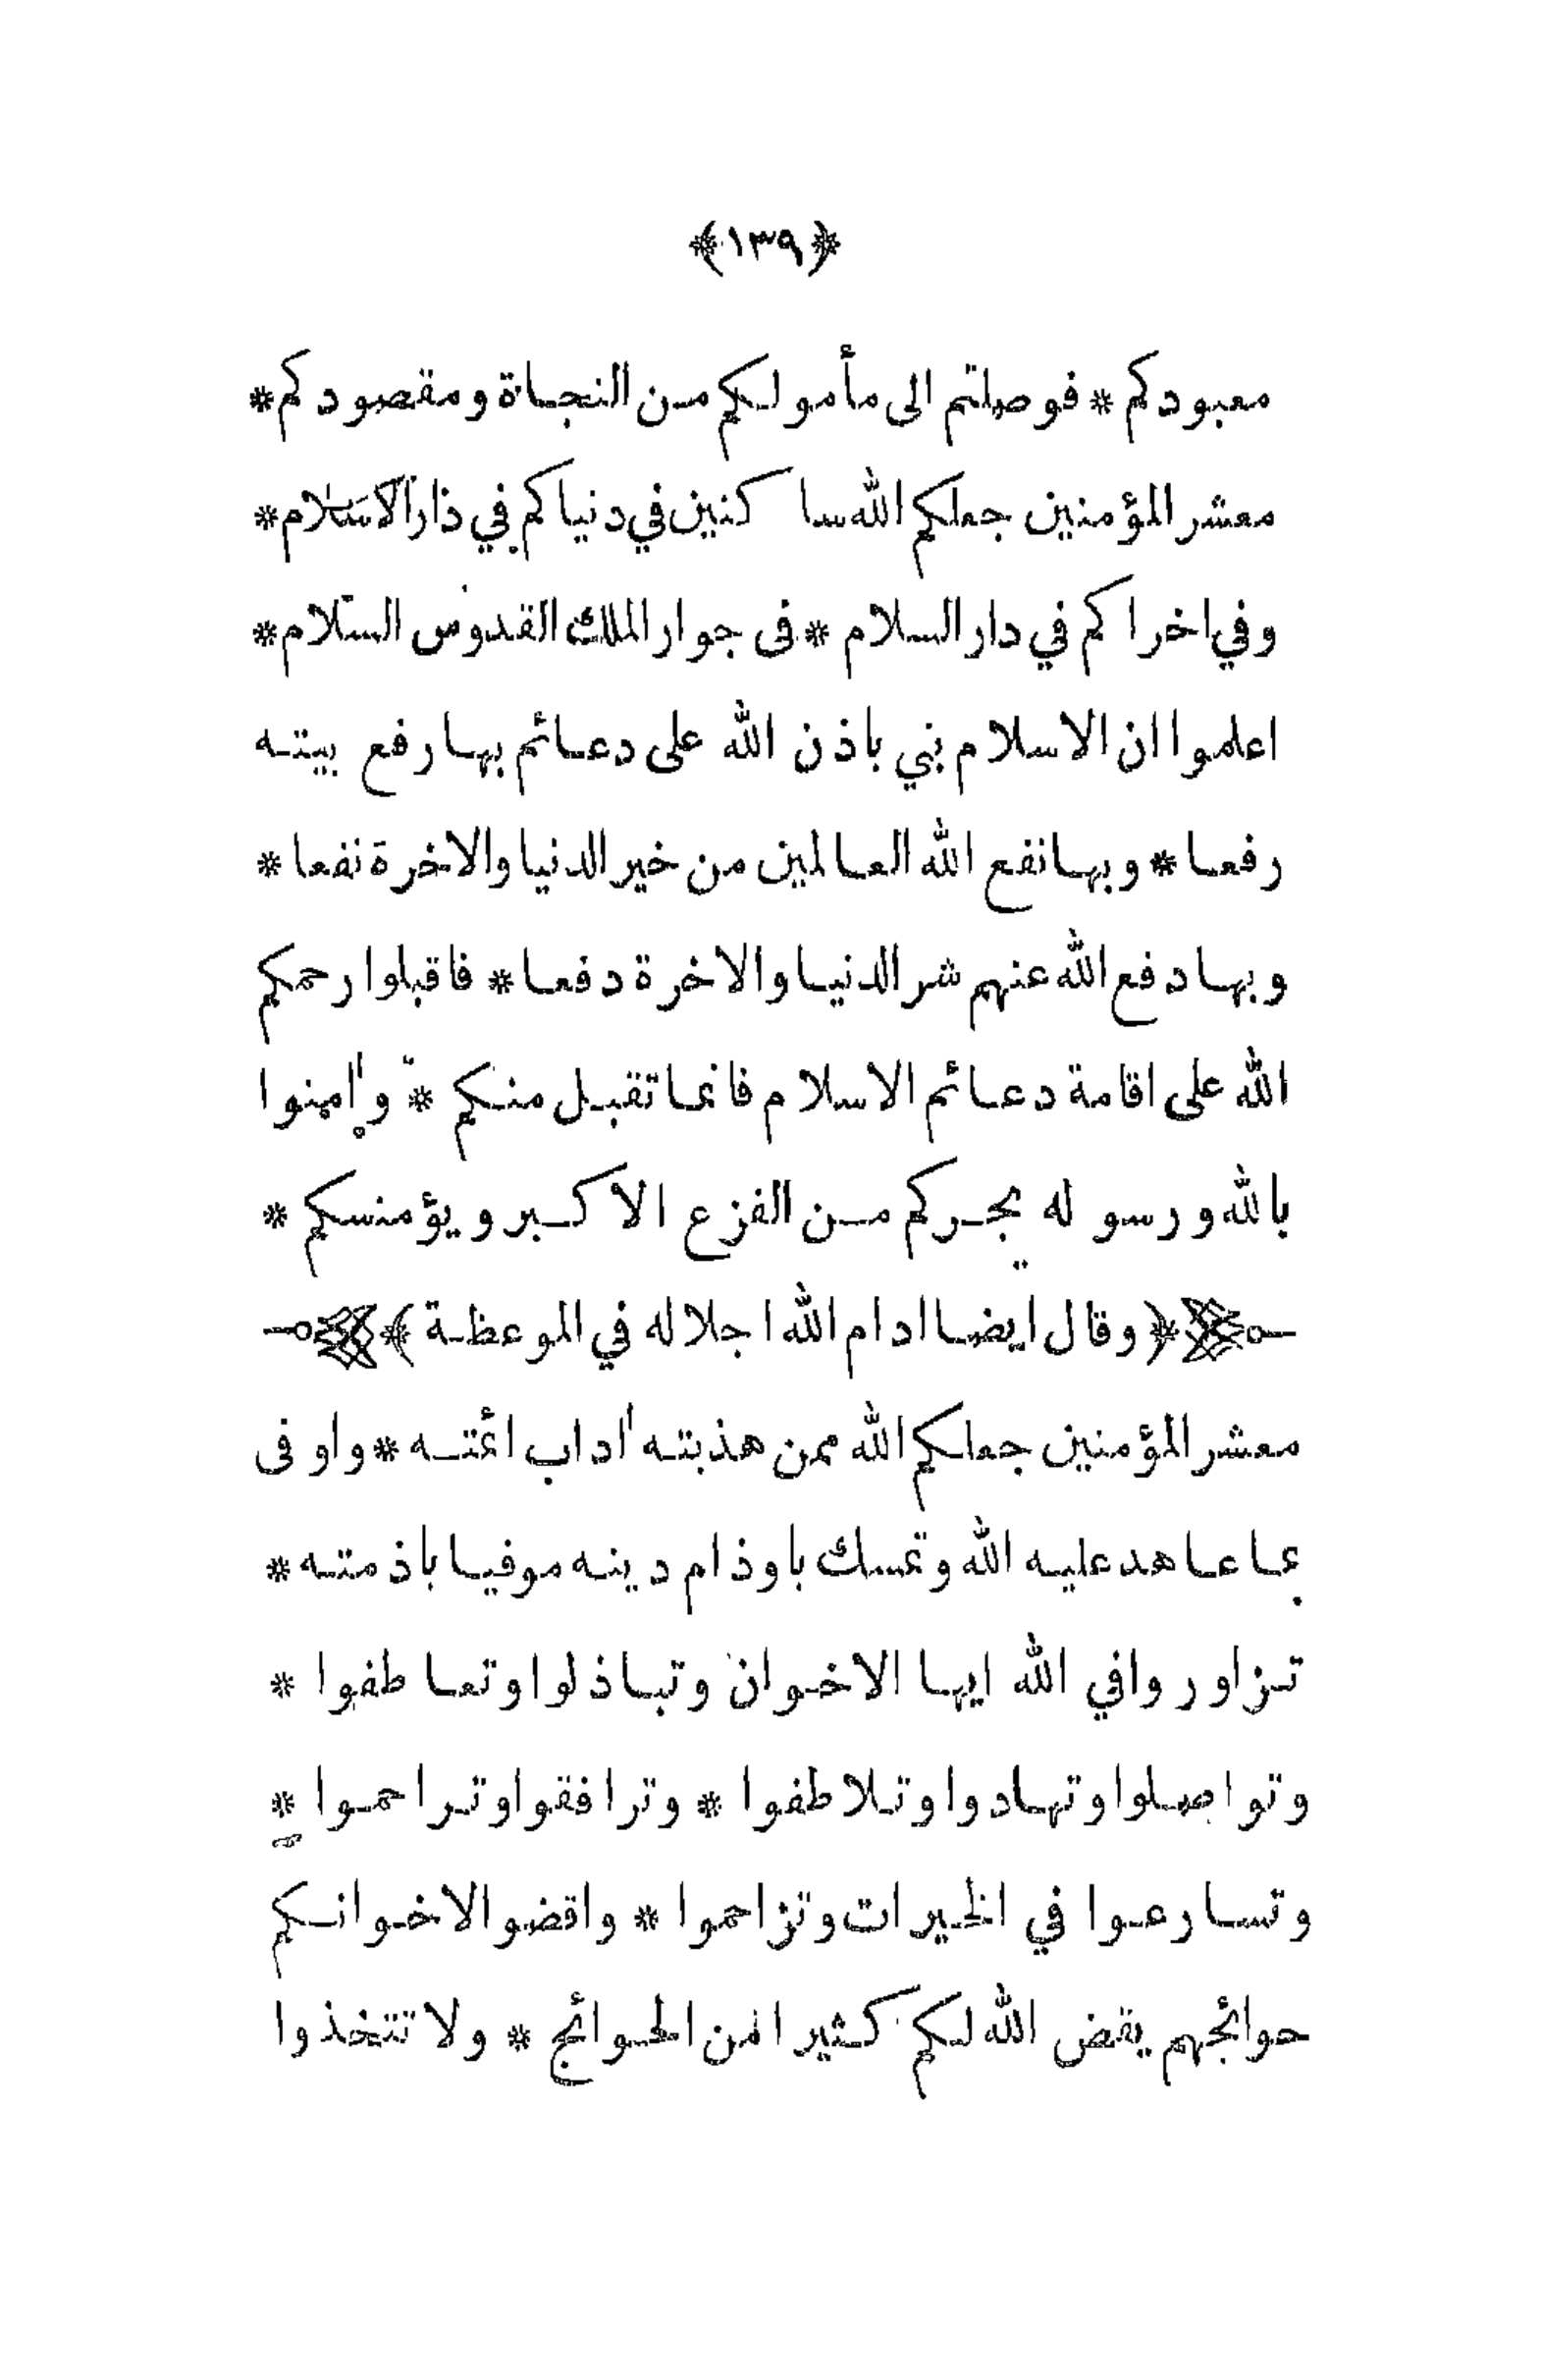 ﴿١٣٩﴾
معبودكم * فوصلتم الى مأمولكم من النجاة ومقصودكم *
معشر المؤمنين جعلكم الله ساكنين في دنياكم في دار الاسلام *
وفي اخراكم في دار السلام * فى جوار الملك القدوس السلام *
اعلموا ان الاسلام بني باذن الله على دعائم بها رفع بيته
رفعا * وبها نفع الله العالمين من خير الدنيا والاخرة نفعا *
وبها دفع الله عنهم شر الدنيا والاخرة دفعا * فاقبلوا رحمكم
الله على اقامة دعائم الاسلام فانما تقبل منكم * وامنوا
بالله ورسوله يجركم من الفزع الاكبر ويؤمنكم *
﴿وقال ايضا ادام الله اجلاله في الموعظة﴾
معشر المؤمنين جعلكم الله ممن هذبته اداب ائمته * واوفى
بما عاهد عليه الله وتمسك باوذام دينه موفيا باذمته *
تزاوروا في الله ايها الاخوان وتباذلوا وتعاطفوا *
وتواصلوا وتهادوا وتلاطفوا * وترافقوا وتراحموا *
وتسارعوا في الخيرات وتزاحموا * واقضوا لاخوانكم
حوائجهم يقض الله لكم كثيرا من الحوائج * ولا تتخذوا